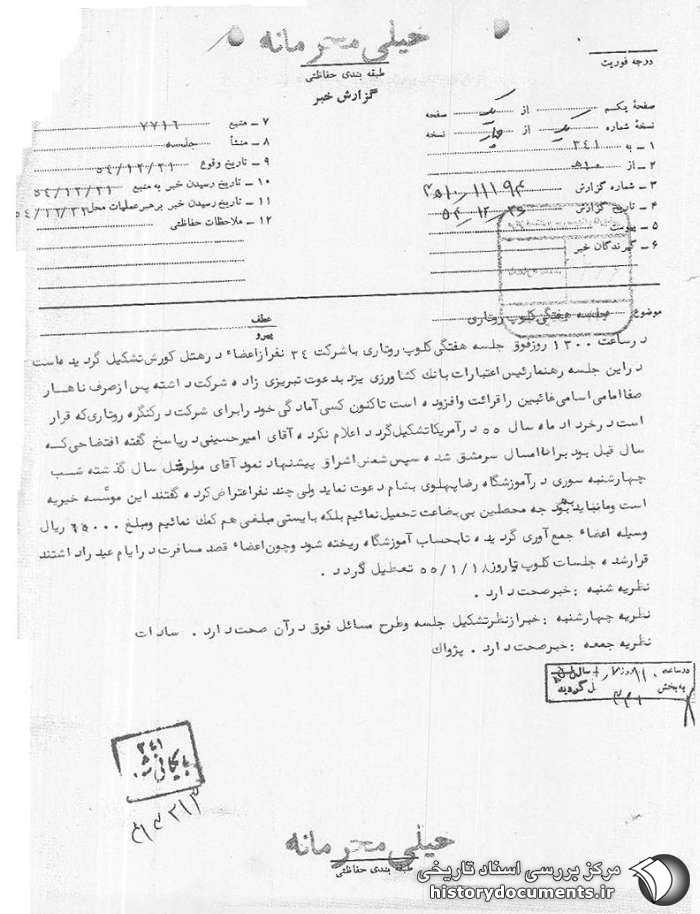 خیلی محرمانه
طبقه بندی حفاظتی
گزارش خبر
درجه فوریت
صفحه یکم از یک صفحه
نسخه شماره یک از چهار نسخه
۱ ـ به ۳۴۱
۲ ـ از ۱۰ھ
۳ ـ شماره گزارش
۴ ـ تاریخ گزارش
۵ ـ پیوست
۶ ـ گیرندگان خبر
۷ ـ منبع ۷۷۱۶
۸ ـ منشأ جلسه
۹ ـ تاریخ وقوع ۵۴/۱۲/۲۱
۱۰ ـ تاریخ رسیدن خبر به منبع ۵۴/۱۲/۲۱
۱۱ ـ تاریخ رسیدن خبر برهبرعملیات محل
۱۲ ـ ملاحظات حفاظتی
موضوع جلسه هفتگی کلوپ روتاری
عطف
پیرو
درساعت ۱۳۰۰ روزفوق جلسه هفتگی کلوپ روتاری باشرکت ۳۴ نفرازاعضاء درهتل کورش تشکیل گردیده است
دراین جلسه رهنمارئیس اعتبارات بانک کشاورزی یزد بدعوت تبریزی زاده شرکت داشته پس ازصرف ناهار
صفاامامی اسامی غائبین راقرائت وافزوده است تاکنون کسی آمادگی خودرابرای شرکت درکنگره روتاری که قرار
است درخرداد ماه سال ۵۵ درآمریکاتشکیل گردد اعلام نکرده آقای امیرحسینی درپاسخ گفته افتضاحی که
سال قبل بود برای ماامسال سرمشق شده سپس شمس اشراق پیشنهاد نمود آقای مولر سال گذشته شب
چهارشنبه سوری درآموزشگاه رضاپهلوی بشام دعوت نماید ولی چند نفراعتراض کرده گفتند این موسّسه خیریه
است ومانباید بودجه محصلین بی بضاعت تحمیل نمائیم بلکه بایستی مبلغی هم کمک نمائیم ومبلغ ۲۵۰۰۰ ریال
وسیله اعضاء جمع آوری گردیده تابحساب آموزشگاه ریخته شود وچون اعضاء قصد مسافرت درایام عید راداشتند
قرارشده جلسات کلوپ تاروز ۵۵/۱/۱۸ تعطیل گردد .
نظریه شنبه : خبرصحت دارد .
نظریه چهارشنبه : خبرازنظرتشکیل جلسه وطرح مسائل فوق درآن صحت دارد . سادات
نظریه جمعه : خبرصحت دارد . پژواک
درساعت
به بخش
۳۴۱
بایگانی شد
خیلی محرمانه
طبقه بندی حفاظتی
مرکز بررسی اسناد تاریخی
historydocuments.ir